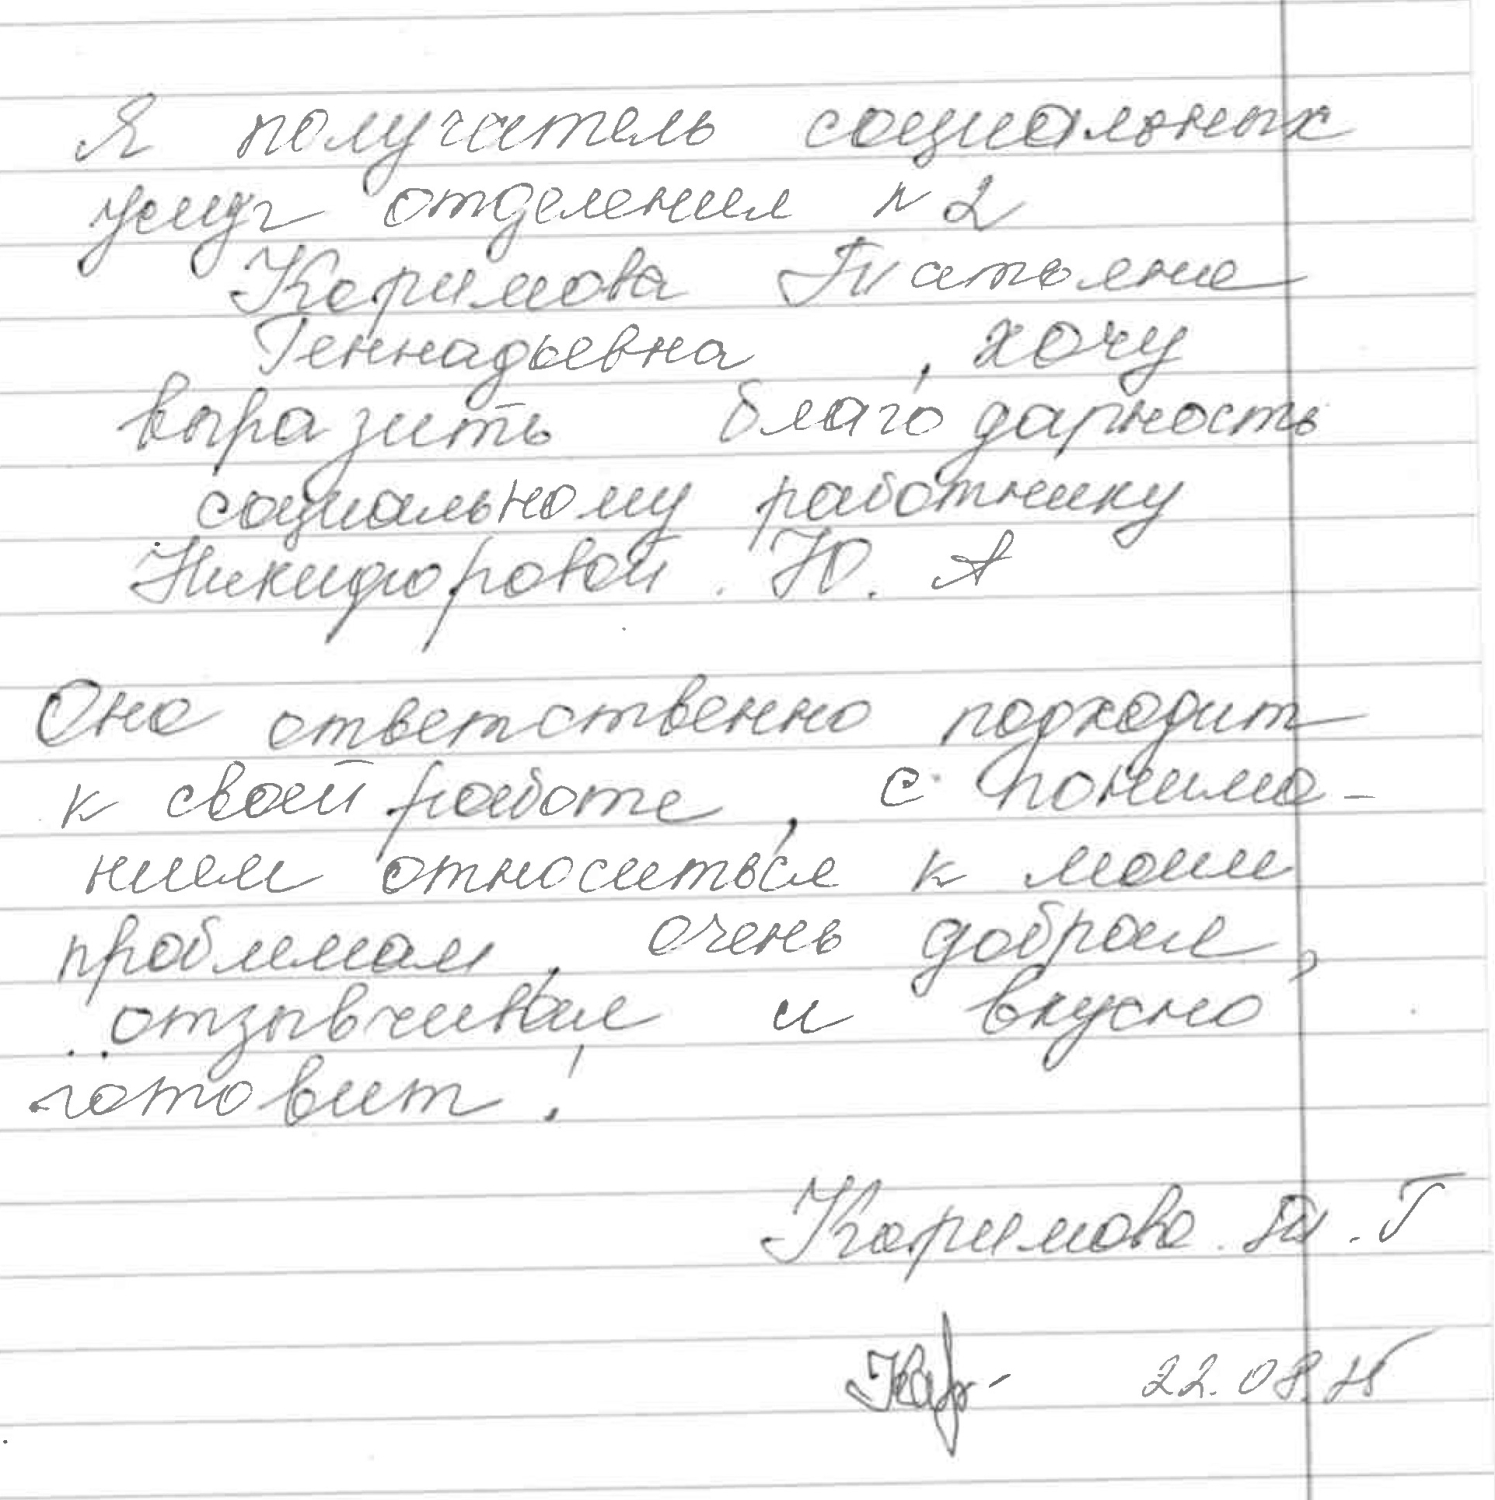 Я получатель социальных
услуг отделения № 2
Каримова Татьяна
Геннадьевна , хочу
выразить благодарность
социальному работнику
Никифоровой . Ю. А
Она ответственно подходит
к своей работе, с понима-
нием относиться к моим
проблемам, очень добрая,
отзывчивая и вкусно
готовит!
Каримова . Т . Г
Кар-
22.08.25